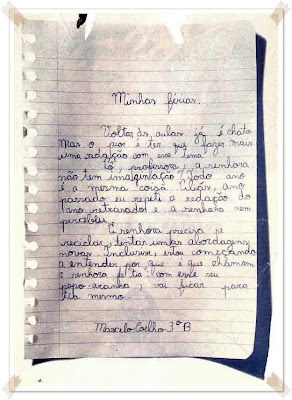 Minhas férias.
Voltar às aulas já é chato
mas o pior é ter que fazer mais
uma redação com esse tema
ô, professora, a senhora
não tem imaginação? Todo ano
é a mesma coisa. Aliás, ano
passado eu repeti a redação do
ano retrasado e a senhora nem
percebeu.
A senhora precisa se
reciclar, tentar umas abordagens
novas. Inclusive, estou começando
a entender por que é que chamam
a senhora de tia. Com esse seu
papo-aranha, vai ficar para
tia mesmo.
Marcelo Coelho 3º B